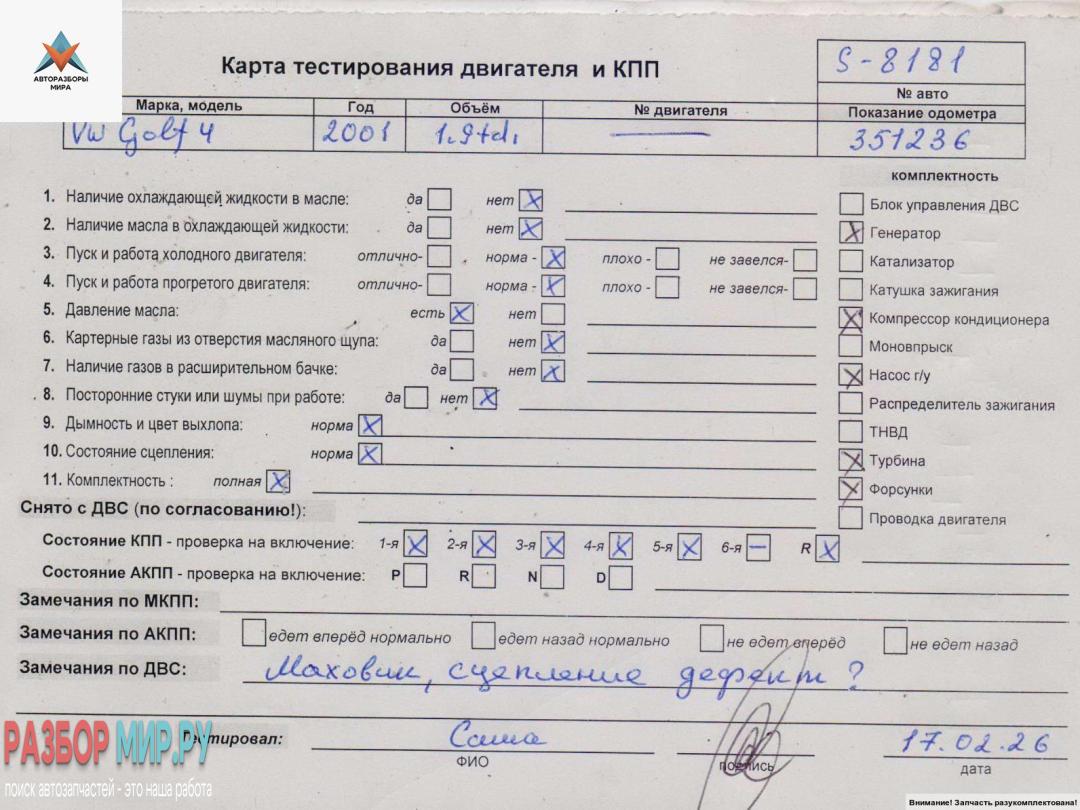 АВТОРАЗБОРЫ
МИРА
Карта тестирования двигателя и КПП
S-8181
№ авто
Марка, модель Год Объём № двигателя Показание одометра
VW Golf 4 2001 1.9tdi 351236
комплектность
1. Наличие охлаждающей жидкости в масле: да нет X
Блок управления ДВС
2. Наличие масла в охлаждающей жидкости: да нет X
X Генератор
3. Пуск и работа холодного двигателя: отлично- норма - X плохо - не завелся-
Катализатор
4. Пуск и работа прогретого двигателя: отлично- норма - X плохо - не завелся-
Катушка зажигания
5. Давление масла: есть X нет
X Компрессор кондиционера
6. Картерные газы из отверстия масляного щупа: да нет X
Моновпрыск
7. Наличие газов в расширительном бачке: да нет X
X Насос г/у
8. Посторонние стуки или шумы при работе: да нет X
Распределитель зажигания
9. Дымность и цвет выхлопа: норма X
ТНВД
10. Состояние сцепления: норма X
X Турбина
11. Комплектность : полная X
X Форсунки
Снято с ДВС (по согласованию!):
Проводка двигателя
Состояние КПП - проверка на включение: 1-я X 2-я X 3-я X 4-я X 5-я X 6-я — R X
Состояние АКПП - проверка на включение: P R N D
Замечания по МКПП:
Замечания по АКПП: едет вперёд нормально едет назад нормально не едет вперёд не едет назад
Замечания по ДВС: Маховик, сцепление дефект ?
Тестировал: Саша 17.02.26
ФИО подпись дата
РАЗБОР МИР.РУ
поиск автозапчастей - это наша работа
Внимание! Запчасть разукомплектована!